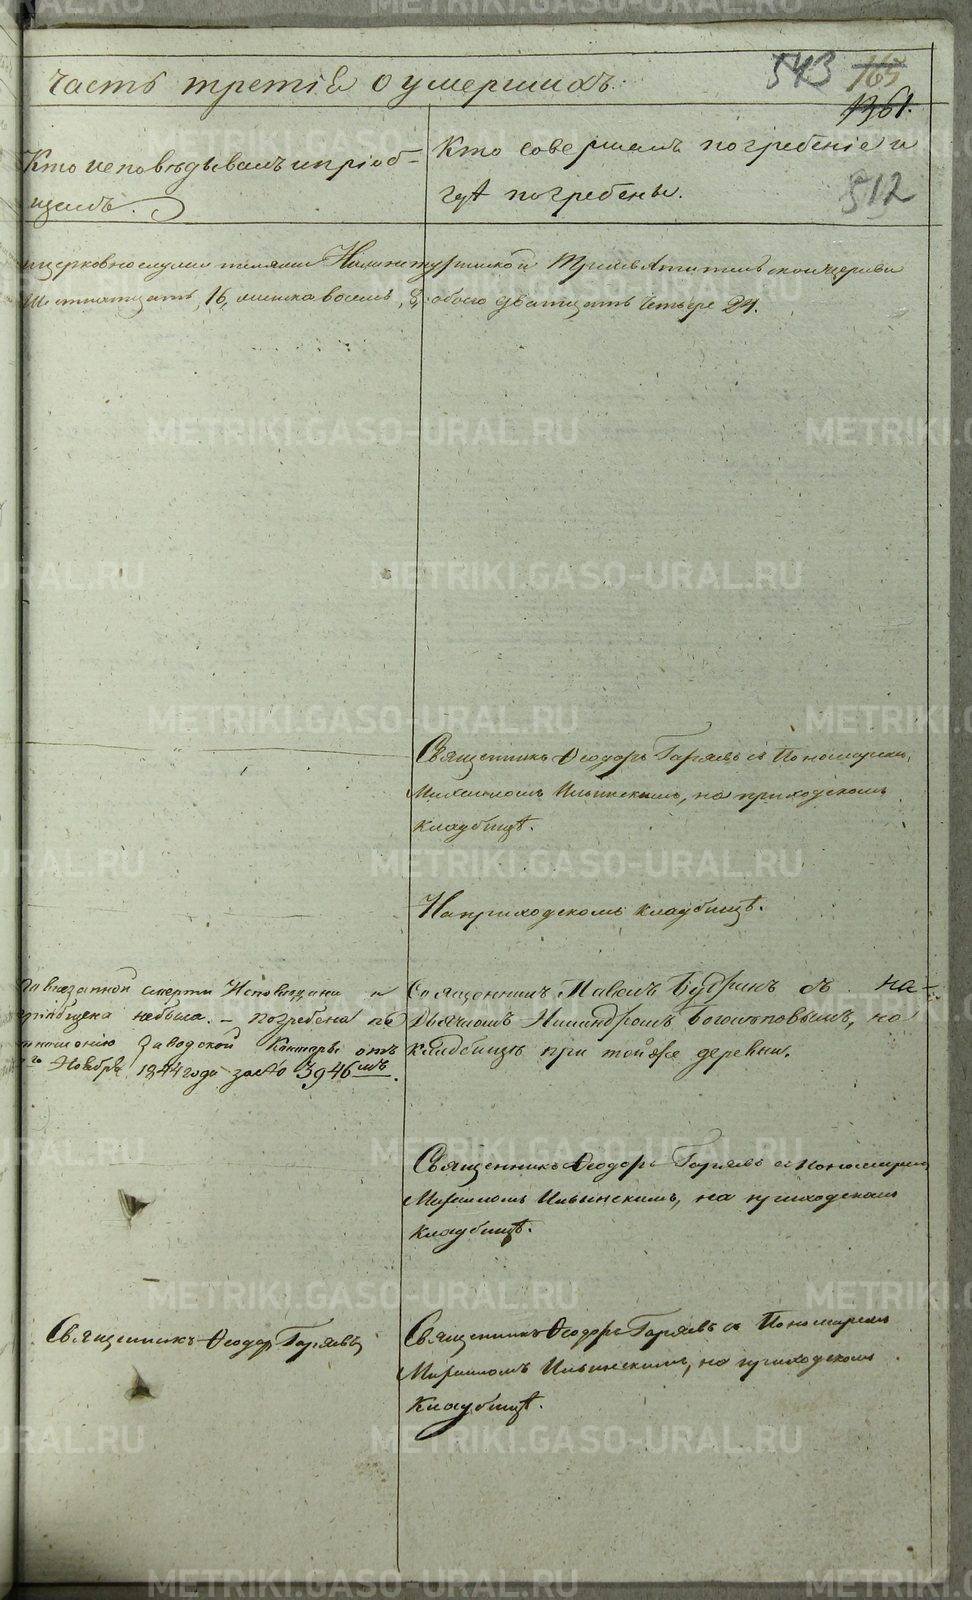 часть третія о умершихъ.
543 165
1361.
512
Кто исповѣдывалъ и пріоб-
щалъ.
Кто совершалъ погребеніе и
гдѣ погребены.
ицерковнослужителями Нижнетуринской Трехсвятительской церкви
Шестнатцать, 16, женска восемь, 8, обоего дватцать четыре 24.
Священникъ Ѳеодоръ Гаряевъ съ Пономаремъ
Михаиломъ Ильинскимъ, на приходскомъ
кладбищѣ.
На приходскомъ кладбищѣ.
внезапной смерти Исповѣдана и
пріобщена небыла. – погребена по
отношенію Заводской Конторы отъ
Ноября 1844 года за № 3946 мъ.
Священникъ Павелъ Будринъ съ на-
Дьячкомъ Никандромъ Боголѣповымъ, на
кладбищѣ при той же деревни.
Священникъ Ѳеодоръ Гаряевъ съ Пономаремъ
Михаиломъ Ильинскимъ, на приходскомъ
кладбищѣ.
Священникъ Ѳеодоръ Гаряевъ
Священникъ Ѳеодоръ Гаряевъ съ Пономаремъ
Михаиломъ Ильинскимъ, на приходскомъ
Кладбищѣ.
METRIKI.GASO-URAL.RU